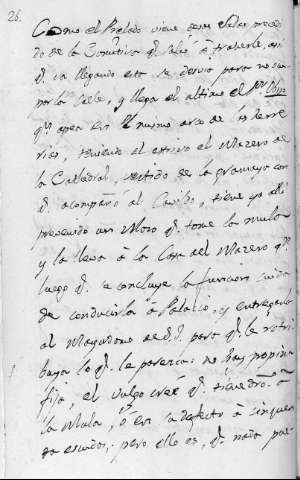 26.
Como el Prelado viene
do de la Comitiva q.e salió à traherle, asi
q.e va llegando esta se desvia para no
por la Calle, y llega el ultimo el S.or Obpo
q.e apea en el mismo arco de las Ferre
rias, teniendo el estrivo el Mazero de
la Cathedral, vestido de la gramaya con
q.e acompañó al Cavildo, tiene ya alli
prevenido un Moro q.e tome la mula
y la lleva à la Casa del Mazero q.n
luego q.e se concluye la funcion cuida
de conducirla à Palacio, y entregarla
al Mayordomo de S.I. para q.e le retri
buya lo q.e le paresca: no hay propina
fija, el vulgo cree q.e tiene dro. à
la Mula, ò en su defecto à cinquen
ta escudos; pero ello es, q.e nada